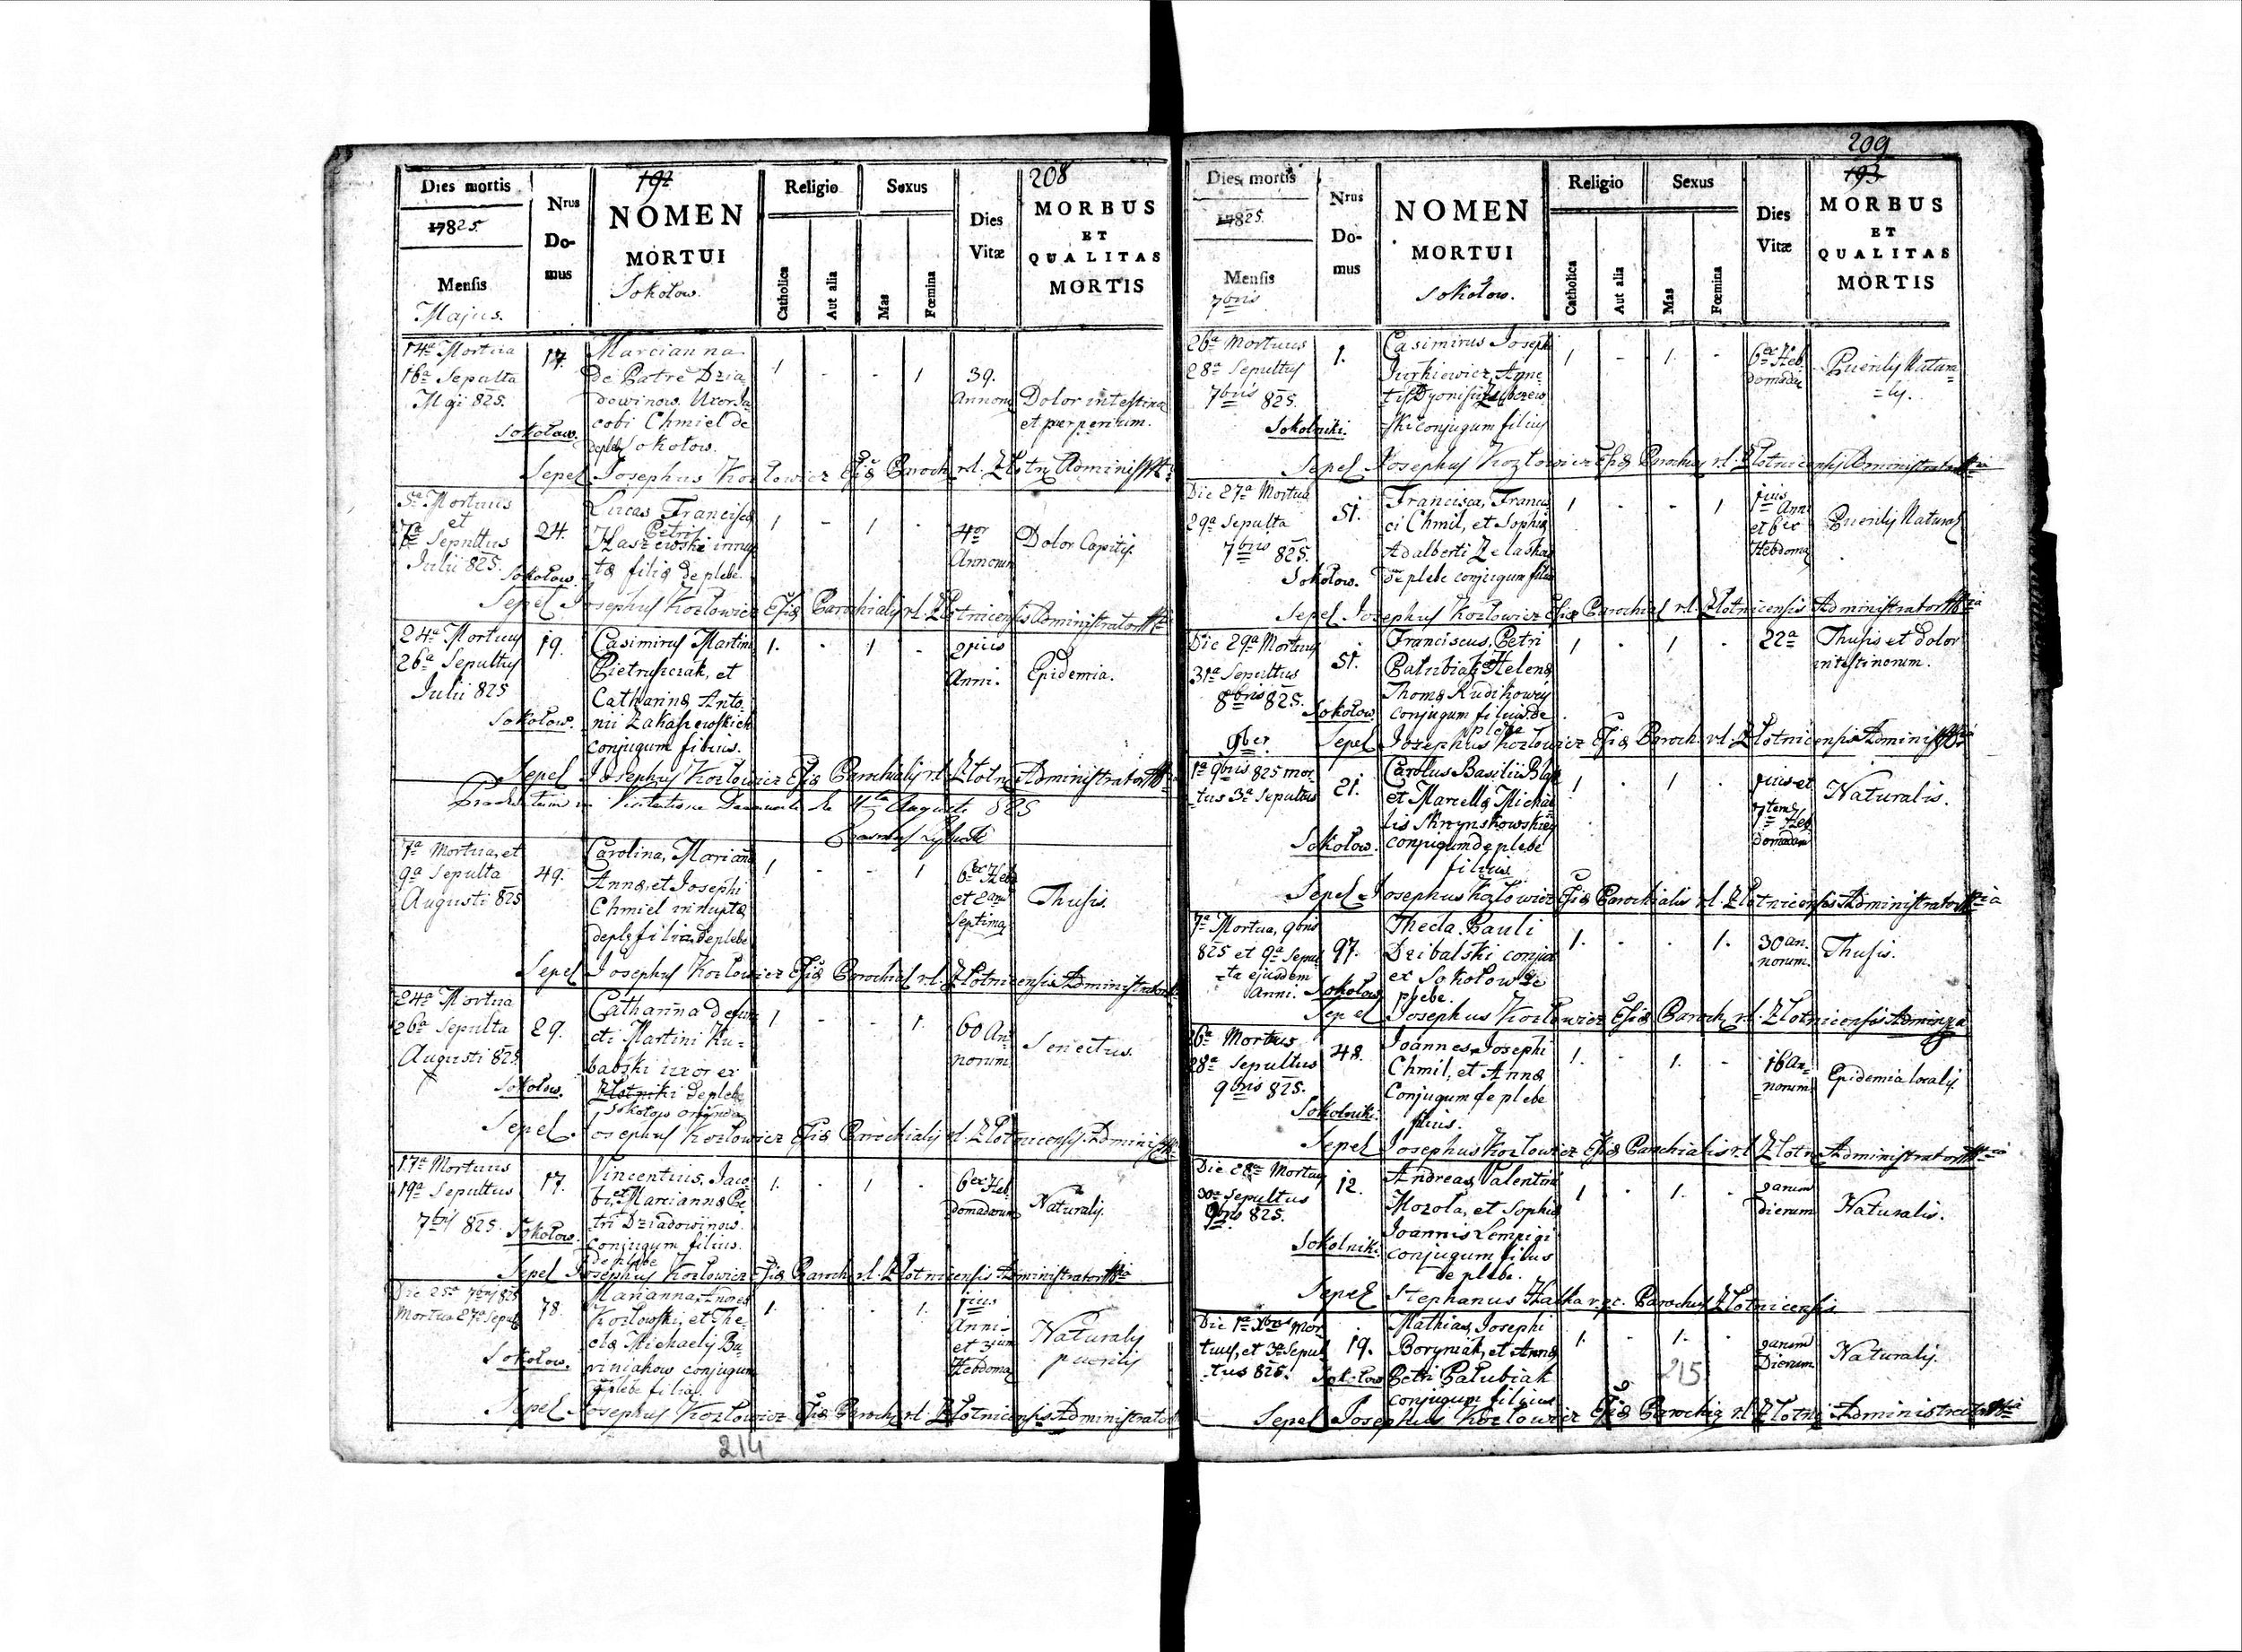 208
192
Dies mortis
17825.
Mensis
Majus.
Nrus
Do-
mus
NOMEN
MORTUI
Sokołow.
Religio
Catholica
Aut alia
Sexus
Mas
Fœmina
Dies
Vitæ
MORBUS
ET
QUALITAS
MORTIS
14a Mortua
16a Sepulta
Maji 825.
Sokołow.
17.
Marcianna
de Patre Dzia
dowinow. Uxor Ja
cobi Chmiel de
Sokołow.
1 - - 1
39.
Annorum
Dolor intestino
et puerperium.
Sepel Josephus Kozłowicz Esiæ Paroch rl. Złotn Administr
5a Mortuus
et
7a Sepultus
Julii 825.
Sokołow.
24.
Lucas Francisca
Petri
Kaszewski innup
tæ filiæ de plebe.
1 - 1 -
4or
Annorum
Dolor Capitis.
Sepel Josephus Kozłowicz Esiæ Parochialis rl. Złotnicensis Administrator
24a Mortuus
26a Sepultus
Julii 825
Sokołow.
19.
Casimirus Martini
Pietruszczak, et
Catharinæ Anto
nii Zakaszewskich
conjugum filius.
1. - 1 -
Anni.
Epidemia.
Sepel Josephus Kozłowicz Esiæ Parochialis rl. Złotn Administrator
Augusti 825
7a Mortua, et
9a Sepulta
Augusti 825
49.
Carolina, Marian
Anna, et Josephi
Chmiel innupta
filia de plebe
1 - - 1
6ex Heb
et
Septima
Thusis.
Sepel Josephus Kozłowicz Esiæ Parochial rl. Złotnicensis Administrator
24a Mortua
26a Sepulta
Augusti 825.
Sokołow.
29.
Catharina defun
cti Martini Ku-
babski uxor ex
Złotniki de plebe
Sokołow oriunda
1 - - 1.
60 An
norum
Senectus.
Sepel Josephus Kozłowicz Esiæ Parochialis rl. Złotnicensis Adminis
17a Mortuus
19a Sepultus
7bris 825.
Sokołow.
17.
Vincentius, Jaco
bi, et Marcianna Pe
tri Dziadowinow.
conjugum filius.
de plebe
1. - 1 -
6ex Heb
domadarum
Naturalis.
Sepel Josephus Kozłowicz Esiæ Paroch rl. Złotnicensis Administrator
Die 25a 7bris 825
Mortua 27a Sepul
Sokołow.
78.
Marianna, Andreæ
Kozłowski, et The
clæ Michaelis Bu
riniakow conjugum
de plebe filia.
1. - - 1.
1ius
Anni
et 3ium
Hebdoma
Naturalis
puerilis
Sepel Josephus Kozłowicz Esiæ Paroch rl. Złotnicensis Administrator
214
209
193
Dies mortis
17825.
Mensis
7bris
Nrus
Do-
mus
NOMEN
MORTUI
Sokołow.
Religio
Catholica
Aut alia
Sexus
Mas
Fœmina
Dies
Vitæ
MORBUS
ET
QUALITAS
MORTIS
26a Mortuus
28a Sepultus
7bris 825.
Sokolniki.
1.
Casimirus Joseph
Jurkiewicz, Agne
tis Dyonisii
ski conjugum filius
1 - 1. -
6ex Heb
domadæ
Puerilis Natura
=lis.
Sepel Josephus Kozłowicz Esiæ Parochia rl. Złotnicensis Administrator
Die 27a Mortua
29a Sepulta
7bris 825.
Sokołow.
51.
Francisca, Francis
ci Chmil, et Sophia
Adalberti Zelaska
de plebe conjugum filia
1 - - 1
1ius Anni
et 6ex
Hebdoma
Puerilis Natural
Sepel Josephus Kozłowicz Esiæ Parochial rl. Złotnicensis Administrator
Die 29a Mortuus
31a Sepultus
8bris 825.
Sokołow
51.
Franciscus, Petri
Patubiak, et Helena
Thoma Rudikowy
conjugum filius de
plebe
1 - 1 -
22a
Thusis et dolor
intestinorum.
9ber.
Sepel Josephus Kozłowicz Esiæ Paroch. rl. Złotnicensis Adminis
1a 9bris 825 mor
tus 3a Sepultus
Sokołow.
21.
Carolus Basilii
et Marcella Micha
lis Skrzynskowskich
conjugum de plebe
filius
1 - 1 -
1ius et
7tem
Heb
domadum
Naturalis.
Sepel Josephus Kozłowicz Esiæ Parochialis rl. Złotnicensis Administrator
7a Mortua, 9bris
825 et 9a Sepul
ta ejusdem
Anni. Sokołow
97.
Thecla. Pauli
Dzibalski conjux
ex Sokołow de
plebe.
1. - - 1.
30 an.
norum.
Thusis.
Sepel Josephus Kozłowicz Esiæ Paroch rl. Złotnicensis
26a Mortuus
28a Sepultus
9bris 825.
Sokolniki.
48.
Joannes, Josephi
Chmil, et Anna
Conjugum de plebe
filius.
1. - 1. -
16 an-
norum
Epidemia localis.
Sepel Josephus Kozłowicz Esiæ Parochialis rl Złotn Administrator
Die 28a Mortuus
30a Sepultus
9bris 825.
Sokolniki.
12.
Andreas, Valentini
Mozola, et Sophia
Joannis Lempigi
conjugum filius
de plebe.
1 - 1. -
dierum
Naturalis.
Sepel Stephanus Hatka Parochus Złotnicensis
Die 1a Xbris Mor
tuus, et 3a Sepul
tus 825.
Sokołow
19.
Mathias, Josephi
Boryniak, et Anna
Petri Patubiak
conjugum filius
1. - 1. -
Dierum
Naturalis.
215
Sepel Josephus Kozłowicz Esiæ Parochia rl. Złotni Administrator